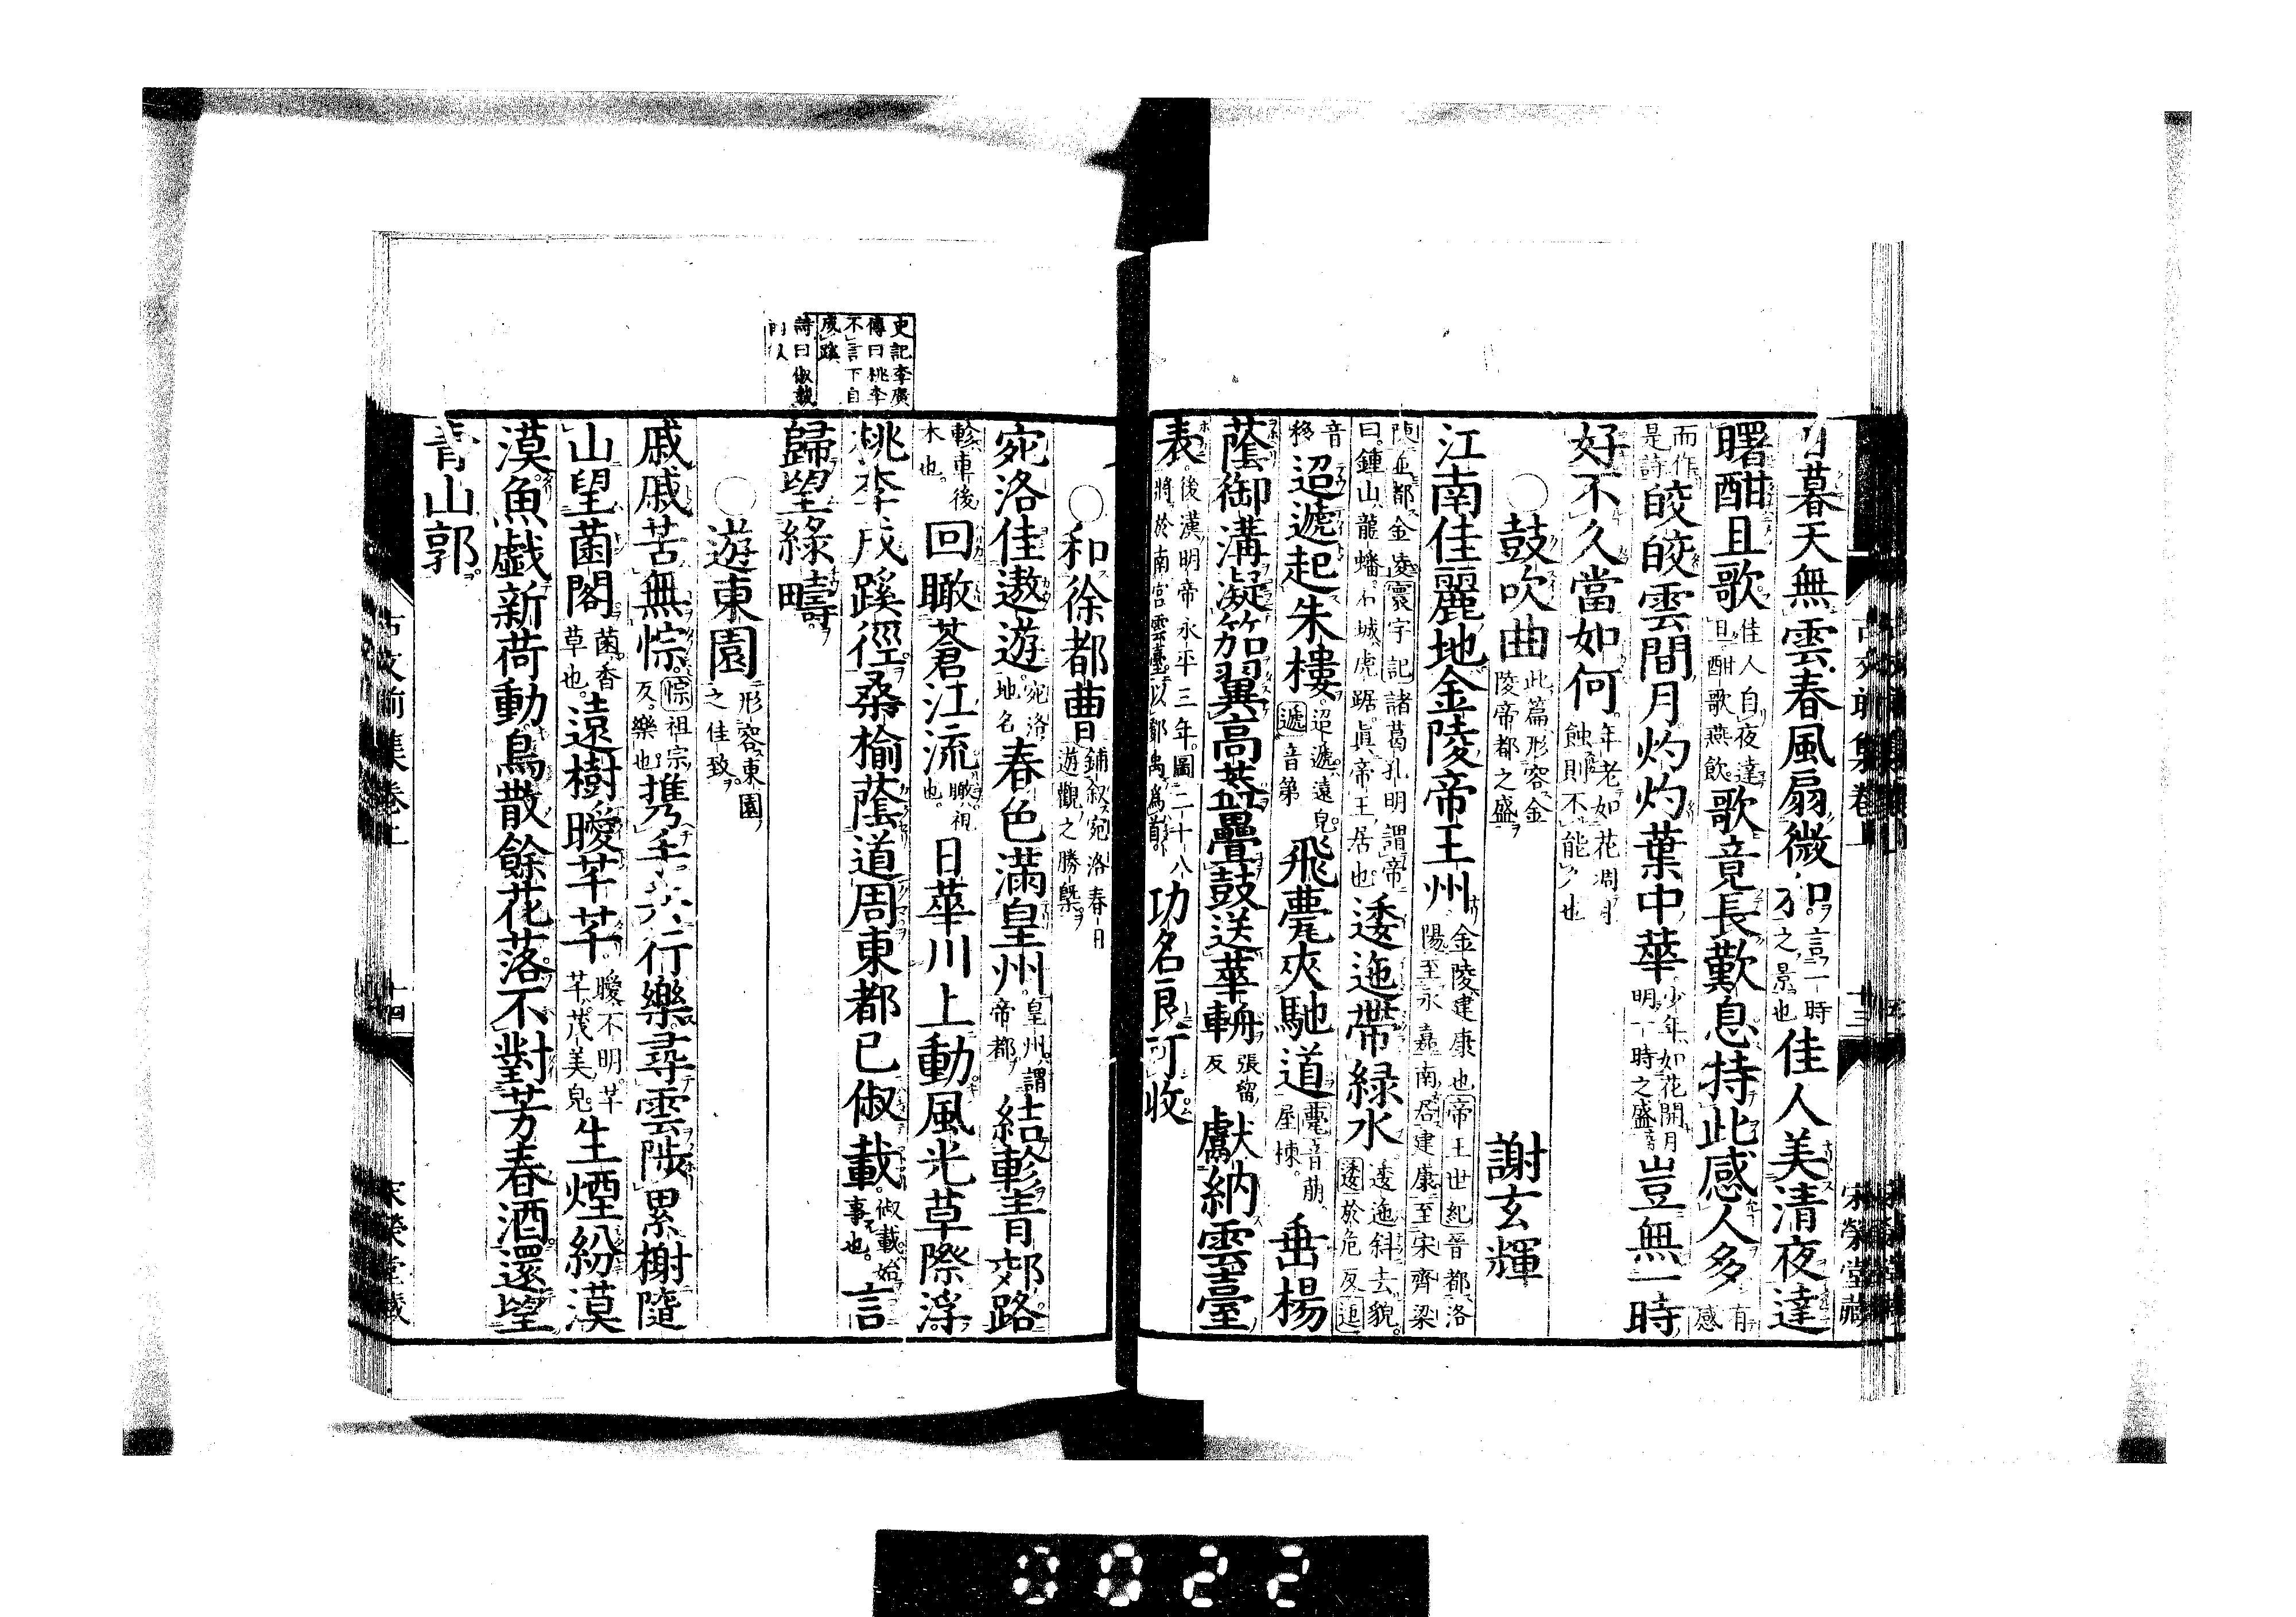 日暮天無雲春風扇微和言一時之景也佳人美清夜達
曙酣且歌佳人自夜達旦酣歌燕飲歌竟長歎息持此感人多有感
而作是詩皎皎雲間月灼灼葉中華少年如花開月明一時之盛豈無一時
好不久當如何年老如花凋月蝕則不能也
○鼓吹曲此篇形容金陵帝都之盛 謝玄輝
江南佳麗地金陵帝王州金陵建康也帝王世紀晉都洛陽至永嘉南居建康至宋齊梁
陳並都金陵寰宇記諸葛孔明謂帝曰鍾山龍蟠石城虎踞眞帝王居也逶迤帶緑水逶迤斜去貌逶於危反迤
音移迢遞起朱樓迢遞遠皃遞音第飛甍夾馳道甍音萌屋棟垂楊
蔭御溝凝笳翼高蓋疊鼓送華輈張留反獻納雲臺
表後漢明帝永平三年圖二十八將於南宮雲臺以鄧禹爲首功名良可收
古文前集卷上 十三 宋榮堂藏
○和徐都曹鋪叙宛洛春日遊觀之勝槩
宛洛佳遨遊宛洛地名春色滿皇州皇州謂帝都結軫青郊路
軫車後木也回瞰蒼江流瞰視也日華川上動風光草際浮
桃李成蹊徑桑榆蔭道周東都已俶載俶載始事也言
歸望緑疇
史記李廣
傳曰桃李
不言下自
成蹊
詩曰俶載
南畝
○遊東園形容東園之佳致
戚戚苦無悰悰祖宗反樂也攜手共行樂尋雲陟累榭隨
山望菌閣菌香草也遠樹曖芊芊曖不明芊芊茂美皃生煙紛漠
漠魚戯新荷動鳥散餘花落不對芳春酒還望
青山郭
古文前集卷上 十四 宋榮堂藏
0022